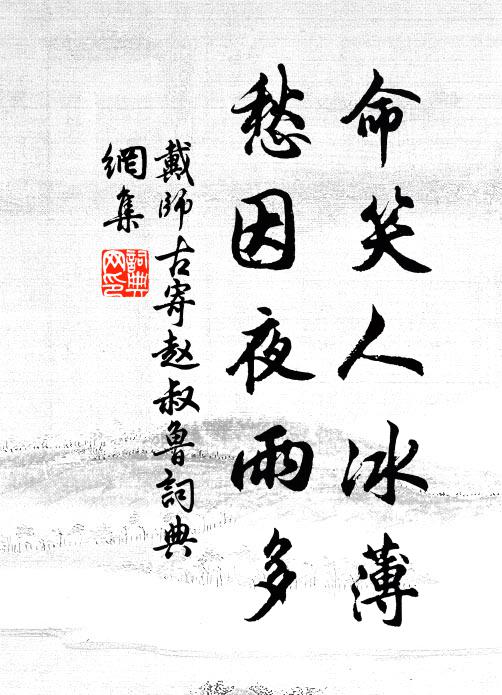 命笑人冰薄
愁因夜雨多
戴師古寄赵叔魯詞典
網集
詞典
网印